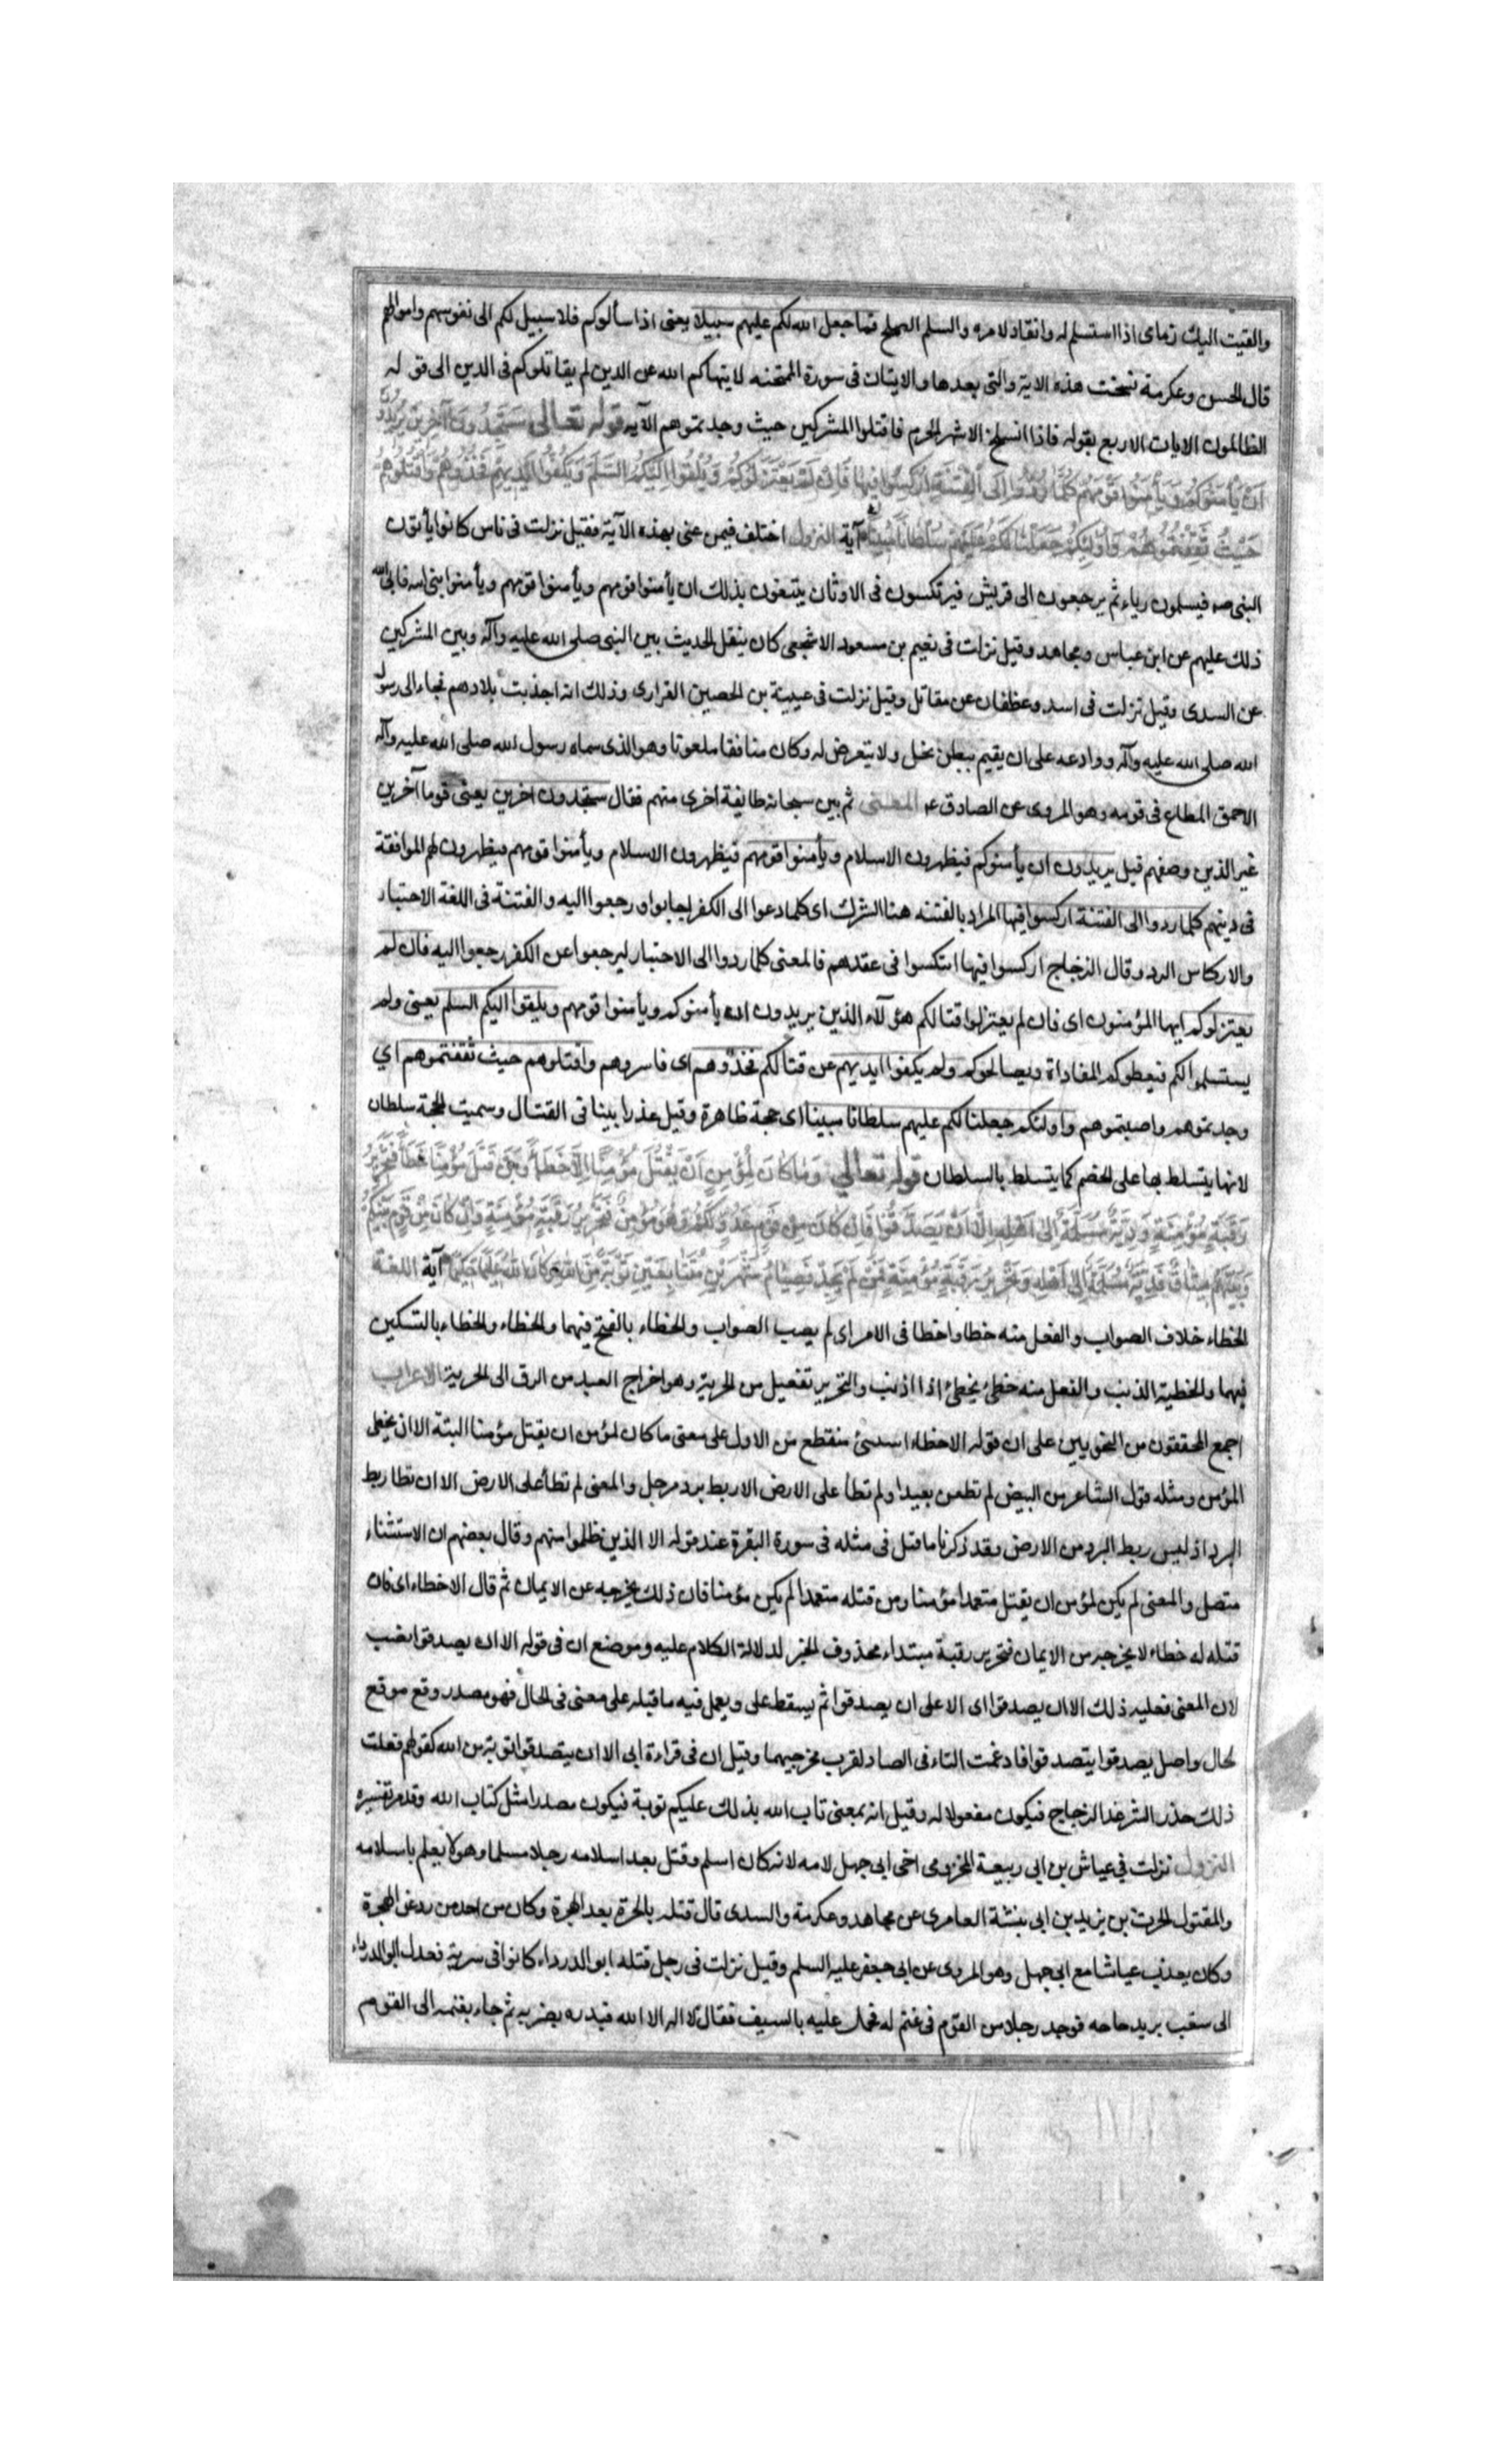 والقيت اليك زمامى اذا استسلم له وانقاد لامره والسلم الصلح فما جعل الله لكم عليهم سبيلا يعنى اذا سألوكم فلا سبيل لكم الى نفوسهم واموالهم
قال الحسن وعكرمة نسخت هذه الاية والتى بعدها والايتان فى سورة الممتحنه لا ينهاكم الله عن الذين لم يقاتلوكم فى الدين الى قوله
الظالمون الايات الاربع بقوله فاذا انسلخ الاشهر الحرم فاقتلوا المشركين حيث وجدتموهم الآيه قوله تعالى سَتَجِدُونَ آخَرِينَ يُرِيدُونَ
اَنْ يَأمَنُوكُمْ وَيَأمَنُوا قَوْمَهُمْ كُلَّمَا رُدُّوا اِلَى الْفِتْنَةِ اُرْكِسُوا فِيهَا فَاِنْ لَمْ يَعْتَزِلُوكُمْ وَيُلْقُوا اِلَيْكُمُ السَّلَمَ وَيَكُفُّوا اَيْدِيَهُمْ فَخُذُوهُمْ وَاقْتُلُوهُمْ
حَيْثُ ثَقِفْتُمُوهُمْ وَاُولٰئِكُمْ جَعَلْنَا لَكُمْ عَلَيْهِمْ سُلْطَانًا مُبِينًا آية النزول اختلف فيمن عنى بهذه الآية فقيل نزلت فى ناس كانوا يأتون
النبى صه فيسلمون رياء ثم يرجعون الى قريش فيرتكسون فى الاوثان يبتغون بذلك ان يأمنوا قومهم ويأمنوا قومهم ويأمنوا نبى الله فابى الله
ذلك عليهم عن ابن عباس ومجاهد وقيل نزلت فى نعيم بن مسعود الاشجعى كان ينقل الحديث بين النبى صلى الله عليه وآله وبين المشركين
عن السدى وقيل نزلت فى اسد وغطفان عن مقاتل وقيل نزلت فى عيينة بن الحصين الفزارى وذلك انه اجدبت بلادهم فجاء الى رسول
الله صلى الله عليه وآله ووادعه على ان يقيم ببطن نخل ولا يتعرض له وكان منافقا ملعونا وهو الذى سماه رسول الله صلى الله عليه وآله
الاحمق المطاع فى قومه وهو المروى عن الصادق ع المعنى ثم بين سبحانه طايفة اخرى منهم فقال ستجدون آخرين يعنى قوما آخرين
غير الذين وصفهم قبل يريدون ان يأمنوكم فيظهرون الاسلام ويأمنوا قومهم فيظهرون الاسلام ويأمنوا قومهم فيظهرون لهم الموافقة
فى دينهم كلما ردوا الى الفتنة اركسوا فيها المراد بالفتنه هنا الشرك اى كلما دعوا الى الكفر اجابوا ورجعوا اليه والفتنة فى اللغة الاختبار
والاركاس الرد وقال الزجاج اركسوا فيها انتكسوا فى عقدهم فالمعنى كلما ردوا الى الاختبار ليرجعوا عن الكفر رجعوا اليه فان لم
يعتزلوكم ايها المؤمنون اى فان لم يعتزلوا قتالكم هؤلآء الذين يريدون ان يأمنوكم ويأمنوا قومهم ويلقوا اليكم السلم يعنى ولم
يستسلموا لكم فيعطوكم المقاداة ويصالحوكم ولم يكفوا ايديهم عن قتالكم فخذوهم اى فاسروهم واقتلوهم حيث ثقفتموهم اي
وجدتموهم واصبتموهم واولئكم جعلنا لكم عليهم سلطانا مبينا اى حجة ظاهرة وقيل عذرا بينا فى القتال وسميت الحجة سلطان
لانها يتسلط بها على الخصم كما يتسلط بالسلطان قوله تعالى وَمَا كَانَ لِمُؤْمِنٍ اَنْ يَقْتُلَ مُؤْمِنًا اِلَّا خَطَأً وَمَنْ قَتَلَ مُؤْمِنًا خَطَأً فَتَحْرِيرُ
رَقَبَةٍ مُؤْمِنَةٍ وَدِيَةٌ مُسَلَّمَةٌ اِلٰى اَهْلِهِ اِلَّا اَنْ يَصَّدَّقُوا فَاِنْ كَانَ مِنْ قَوْمٍ عَدُوٍّ لَكُمْ وَهُوَ مُؤْمِنٌ فَتَحْرِيرُ رَقَبَةٍ مُؤْمِنَةٍ وَاِنْ كَانَ مِنْ قَوْمٍ بَيْنَكُمْ
وَبَيْنَهُمْ مِيثَاقٌ فَدِيَةٌ مُسَلَّمَةٌ اِلٰى اَهْلِهِ وَتَحْرِيرُ رَقَبَةٍ مُؤْمِنَةٍ فَمَنْ لَمْ يَجِدْ فَصِيَامُ شَهْرَيْنِ مُتَتَابِعَيْنِ تَوْبَةً مِنَ اللهِ وَكَانَ اللهُ عَلِيمًا حَكِيمًا آية اللغة
الخطاء خلاف الصواب والفعل منه خطا واخطا فى الامر اى لم يصب الصواب والخطاء بالفتح فيهما والخطاء والخطاء بالتسكين
فيهما والخطية الذنب والفعل منه خطئ يخطئ اذا اذنب والتحرير تفعيل من الحرية وهو اخراج العبد من الرق الى الحرية الاعراب
اجمع المحققون من النحويين على ان قوله الا خطاء استثنئ منقطع من الاول على معنى ما كان لمؤمن ان يقتل مؤمنا البتة الا ان يخطى
المؤمن ومثله قول الشاعر من البيض لم تظعن بعيدا ولم تطأ على الارض الا ريط برد مرجل والمعنى لم تطأ على الارض الا ان تطا ريط
البرد اذ ليس ريط البرد من الارض وقد ذكرنا ما قيل فى مثله فى سورة البقرة عند قوله الا الذين ظلموا منهم وقال بعضهم ان الاستثناء
متصل والمعنى لم يكن لمؤمن ان يقتل متعمدا مؤمنا ومن قتله متعمدا لم يكن مؤمنا فان ذلك يخرجه عن الايمان ثم قال الا خطاء اى فان
قتله له خطاء لا يخرجه من الايمان فتحرير رقبة مبتداء محذوف الخبر لدلالة الكلام عليه وموضع ان فى قوله الا ان يصدقوا نصب
لان المعنى فعليه ذلك الا ان يصدقوا اى الا على ان يصدقوا ثم يسقط على ويعمل فيه ما قبله على معنى فى الحال فهو مصدر وقع موقع
الحال واصل يصدقوا يتصدقوا فادغمت التاء فى الصاد لقرب مخرجيهما وقيل ان فى قراءة ابى الا ان يتصدقوا توبة من الله كقولهم فعلت
ذلك حذر الشر عند الزجاج فيكون مفعولا له وقيل انه بمعنى تاب الله بذلك عليكم توبة فيكون مصدرا مثل كتاب الله وقدم تفسيره
النزول نزلت في عياش بن ابى ربيعة المخزومى اخى ابى جهل لامه لانه كان اسلم وقتل بعد اسلامه رجلا مسلما وهو لا يعلم باسلامه
والمقتول الحرث بن يزيد بن ابى نبشة العامرى عن مجاهد وعكرمة والسدى قال قتله بالحرة بعد الهجرة وكان من احد من رده عن الهجرة
وكان يعذب عياشا مع ابى جهل وهو المروى عن ابى جعفر عليه السلم وقيل نزلت فى رجل قتله ابو الدرداء كانوا فى سرية فعدل ابو الدرداء
الى سقب يريد حاحه فوجد رجلا من القوم فى غنم له فحمل عليه بالسيف فقال لا اله الا الله فبدره بضربه ثم جاء بغنمه الى القوم